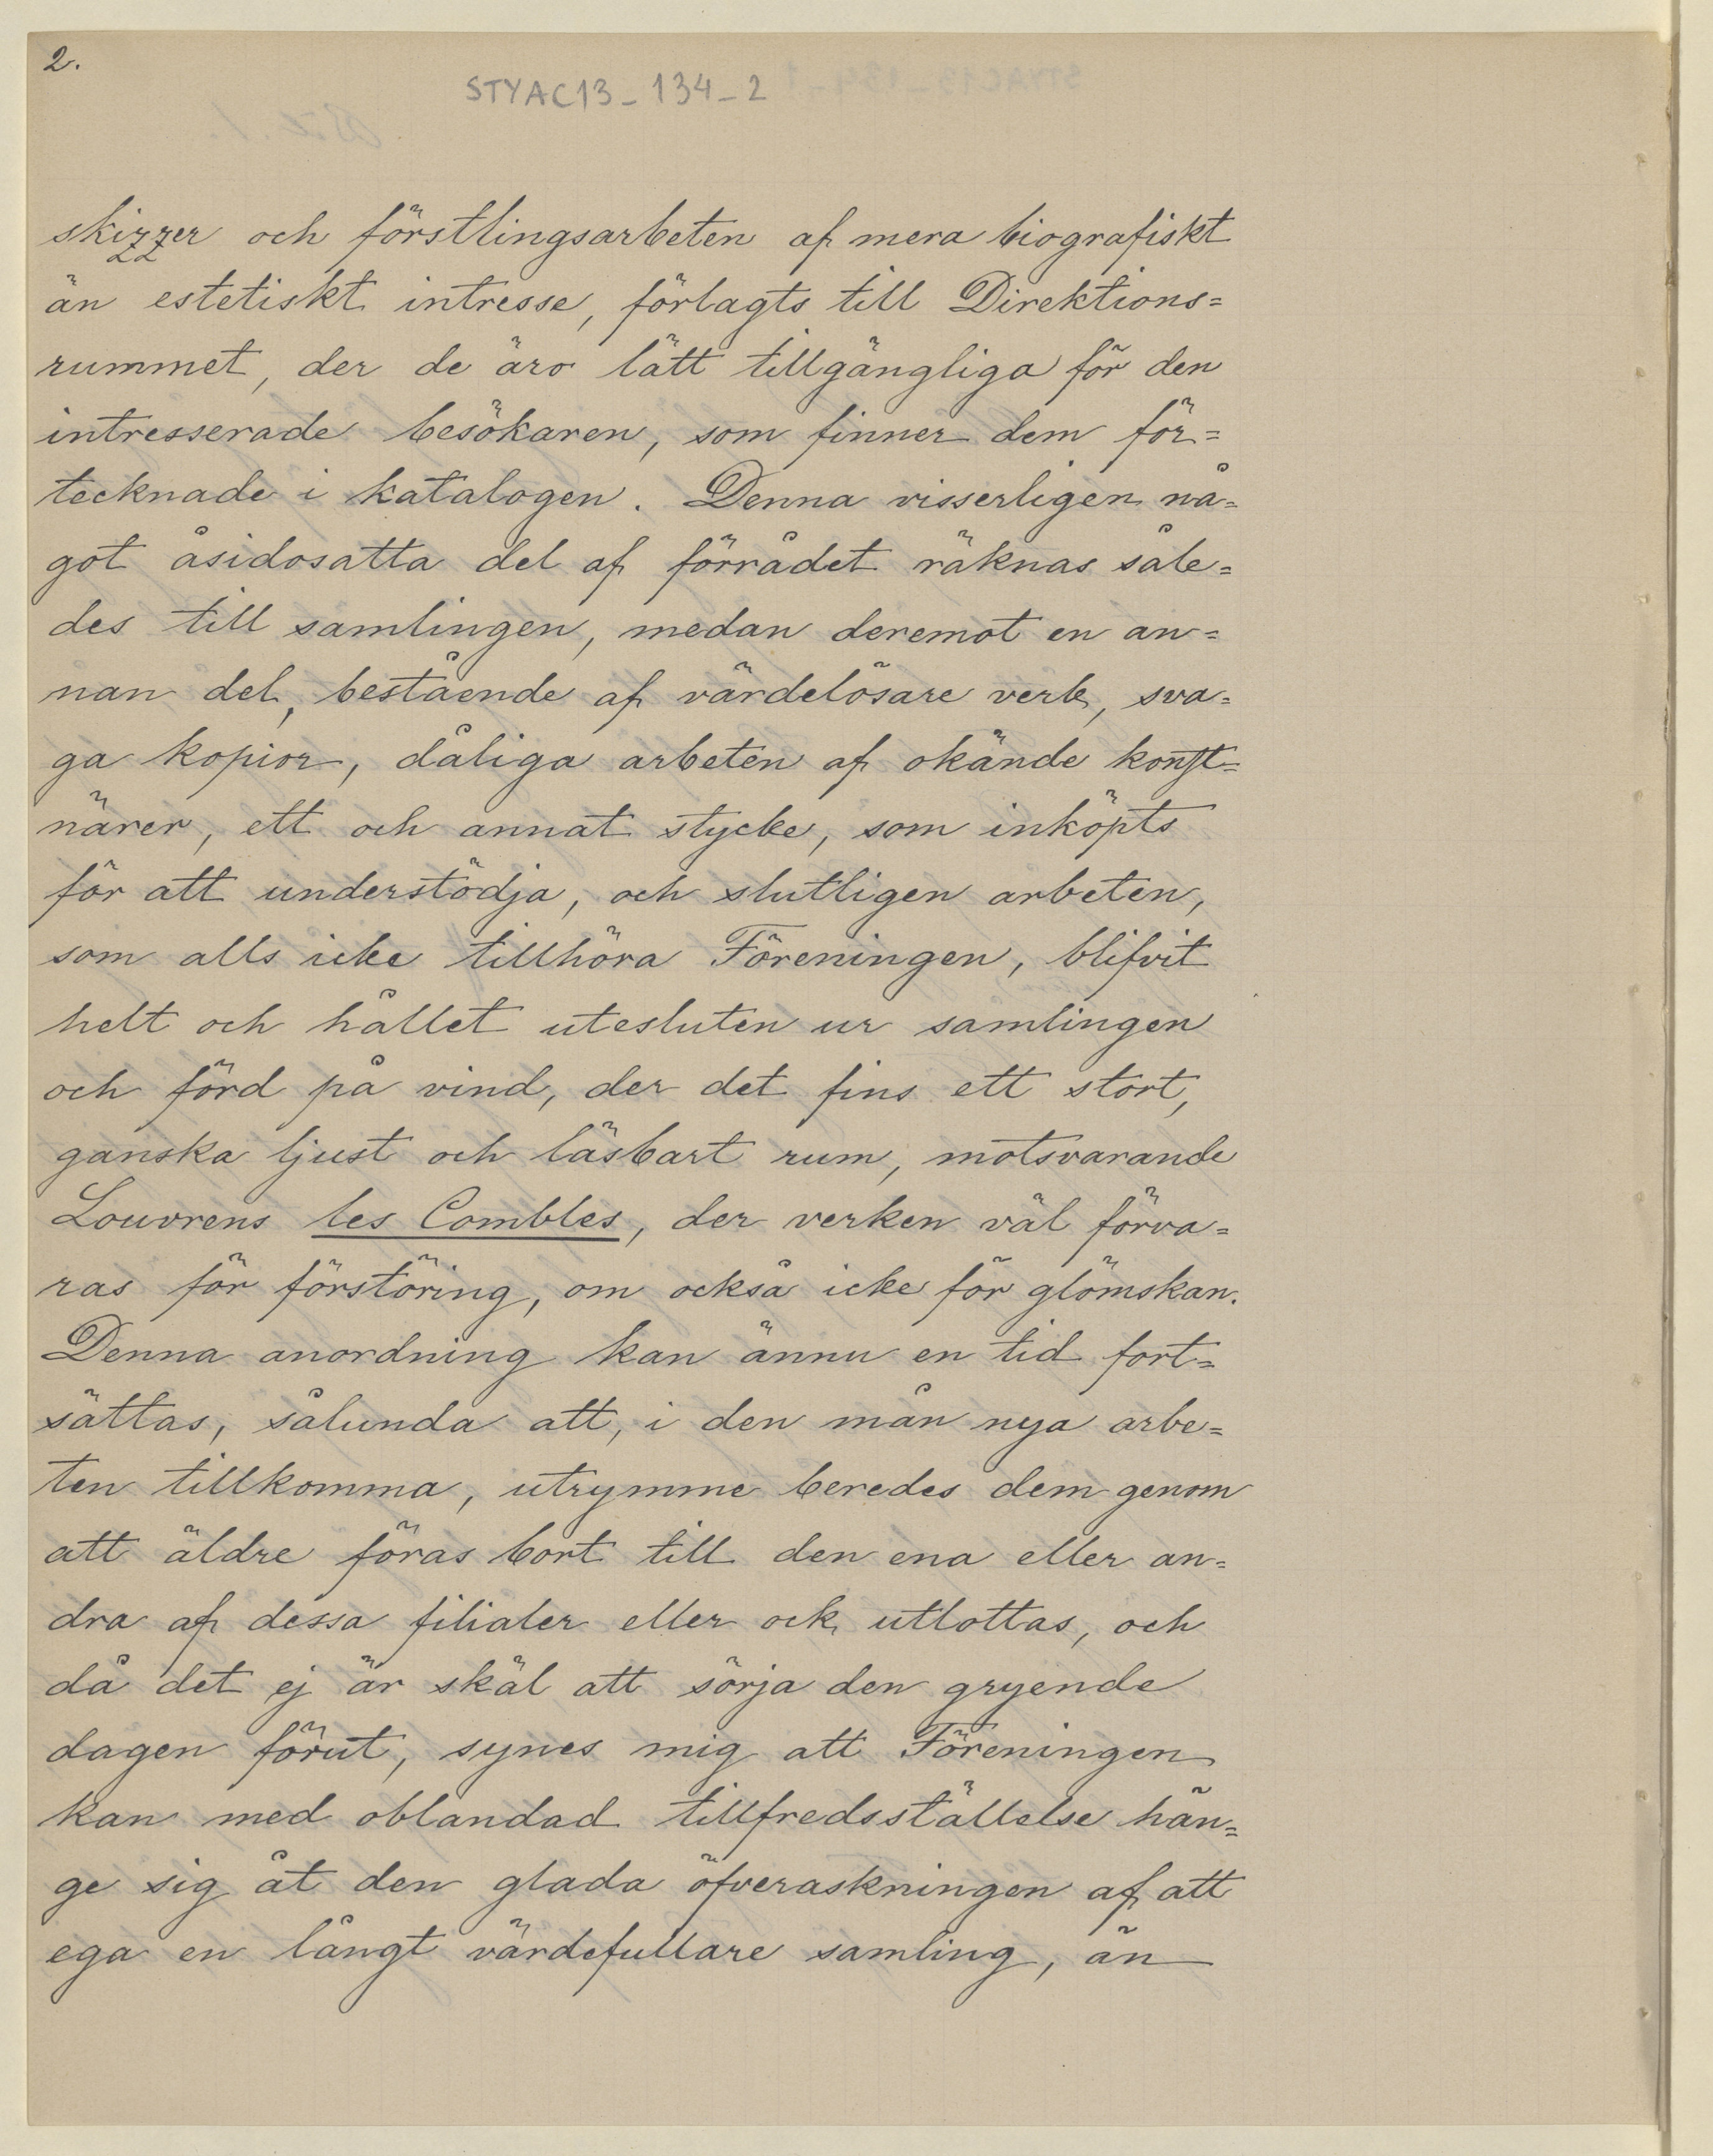 2.
STYAC13_134_2
skizzer och förstlingsarbeten af mera biografiskt
än estetiskt intresse, förlagts till Direktions=
rummet, der de äro lätt tillgängliga för den
intresserade besökaren, som finner dem för=
tecknade i katalogen. Denna visserligen nå=
got åsidosatta del af förrådet räknas såle=
des till samlingen, medan deremot en an=
nan del, bestående af värdelösare verk, sva=
ga kopior, dåliga arbeten af okände konst=
närer, ett och annat stycke, som inköpts
för att understödja, och slutligen arbeten,
som alls icke tillhöra Föreningen, blifvit
helt och hållet utesluten ur samlingen
och förd på vind, der det fins ett stort,
ganska ljust och låsbart rum, motsvarande
Louvrens les Combles, der verken väl förva=
ras för förstöring, om också icke för glömskan.
Denna anordning kan ännu en tid fort=
sättas, sålunda att, i den mån nya arbe=
ten tillkomma, utrymme beredes dem genom
att äldre föras bort till den ena eller an=
dra af dessa filialer eller ock utlottas, och
då det ej är skäl att sörja den gryende
dagen förut, synes mig att Föreningen
kan med oblandad tillfredsställelse hän=
ge sig åt den glada öfveraskningen af att
ega en långt värdefullare samling, än